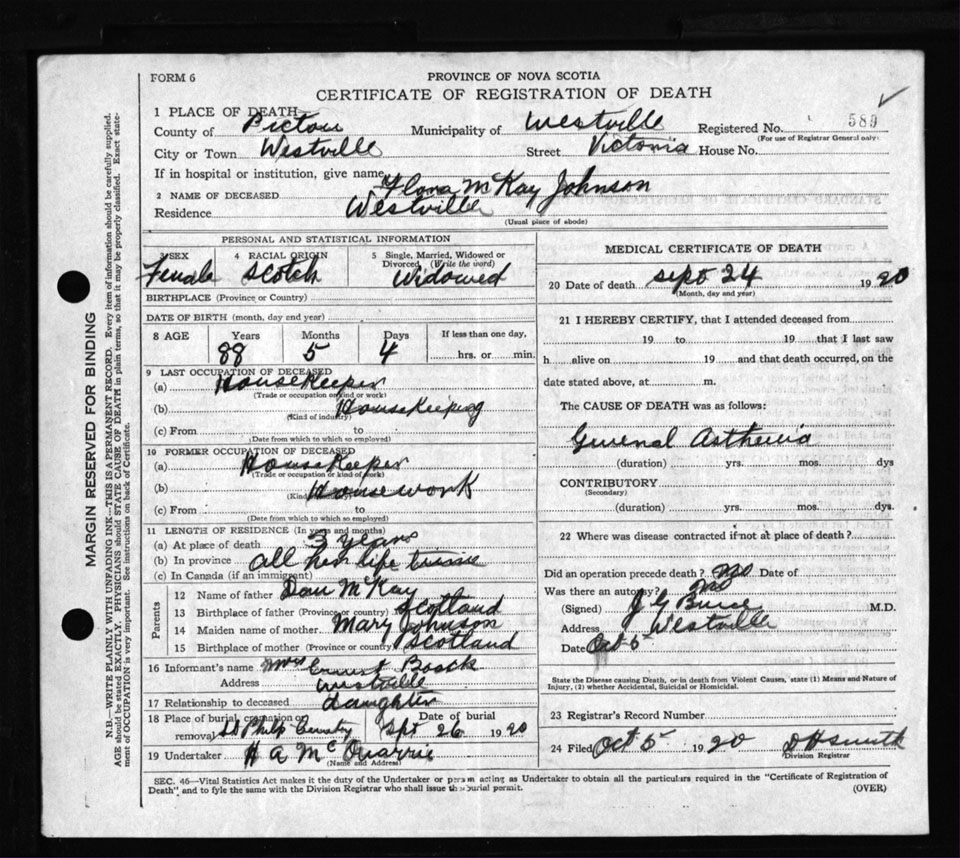 FORM 6
PROVINCE OF NOVA SCOTIA
CERTIFICATE OF REGISTRATION OF DEATH
1 PLACE OF DEATH
County of Pictou Municipality of Westville Registered No. 589
(For use of Registrar General only)
City or Town Westville Street Victoria House No.
If in hospital or institution, give name
2 NAME OF DECEASED Flora McKay Johnson
Residence Westville
(Usual place of abode)
MARGIN RESERVED FOR BINDING
N.B.—WRITE PLAINLY WITH UNFADING INK—THIS IS A PERMANENT RECORD. Every item of information should be carefully supplied.
AGE should be stated EXACTLY. PHYSICIANS should STATE CAUSE OF DEATH in plain terms, so that it may be properly classified. Exact state-
ment of OCCUPATION is very important. See instructions on back of Certificate.
PERSONAL AND STATISTICAL INFORMATION
SEX 4 RACIAL ORIGIN 5 Single, Married, Widowed or
Divorced (Write the word)
Female Scotch Widowed
BIRTHPLACE (Province or Country)
DATE OF BIRTH (month, day and year)
8 AGE Years Months Days If less than one day,
88 5 4 hrs. or min.
9 LAST OCCUPATION OF DECEASED
(a) Housekeeper
(Trade or occupation or kind or work)
(b) Housekeeping
(Kind of industry)
(c) From to
(Date from which to which so employed)
10 FORMER OCCUPATION OF DECEASED
(a) Housekeeper
(Trade or occupation or kind of work)
(b) Housework
(c) From to
(Date from which to which so employed)
11 LENGTH OF RESIDENCE (In years and months)
(a) At place of death 3 years
(b) In province all her life time
(c) In Canada (if an immigrant)
Parents
12 Name of father Dan McKay
13 Birthplace of father (Province or country) Scotland
14 Maiden name of mother Mary Johnson
15 Birthplace of mother (Province or country) Scotland
16 Informant's name Mrs Ernest
Address Westville
17 Relationship to deceased Daughter
18 Place of burial, cremation or Date of burial
removal Sept 26 1920
19 Undertaker H A McQuarrie
(Name and Address)
MEDICAL CERTIFICATE OF DEATH
20 Date of death Sept 24 1920
(Month, day and year)
21 I HEREBY CERTIFY, that I attended deceased from
19 to 19 that I last saw
h alive on 19 and that death occurred, on the
date stated above, at m.
The CAUSE OF DEATH was as follows:
General Asthenia
(duration) yrs. mos. dys
CONTRIBUTORY
(Secondary)
(duration) yrs. mos. dys.
22 Where was disease contracted if not at place of death?
Did an operation precede death? No Date of
Was there an autopsy? No
(Signed) J G M.D.
Address Westville
Date Oct 5
State the Disease causing Death, or in death from Violent Causes, state (1) Means and Nature of
Injury, (2) whether Accidental, Suicidal or Homicidal.
23 Registrar's Record Number
24 Filed Oct 5 1920 D H Smith
Division Registrar
SEC. 46—Vital Statistics Act makes it the duty of the Undertaker or person acting as Undertaker to obtain all the particulars required in the "Certificate of Registration of
Death" and to fyle the same with the Division Registrar who shall issue the burial permit.
(OVER)